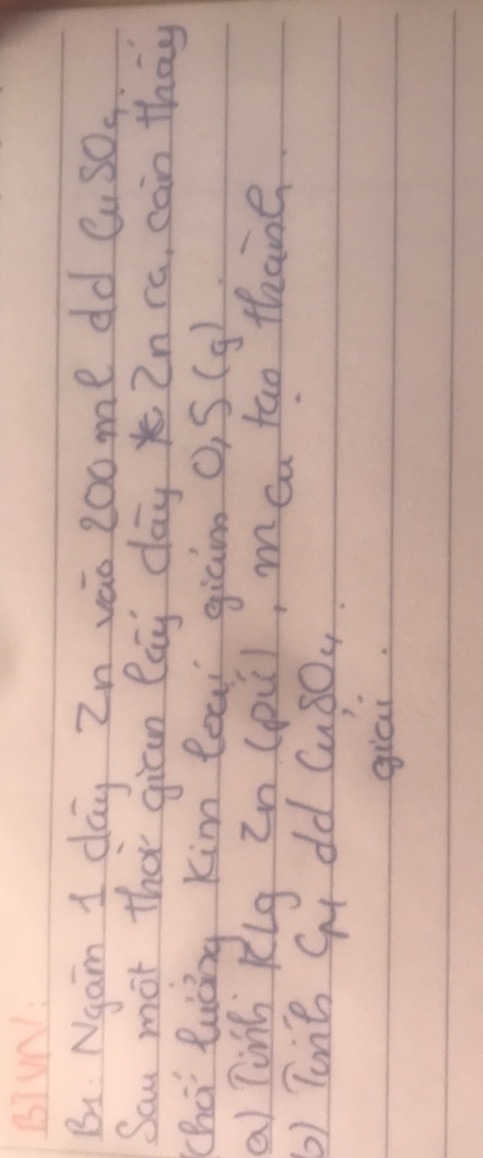 BTVN:
B1: Ngâm 1 dây Zn vào 200 ml dd CuSO4.
Sau một thời gian lấy dây Zn ra, cân thấy
khối lượng kim loại giảm 0,5 (g).
a) Tính KLg Zn (pứ), mCu tạo thành.
b) Tính CM dd CuSO4.
giải.